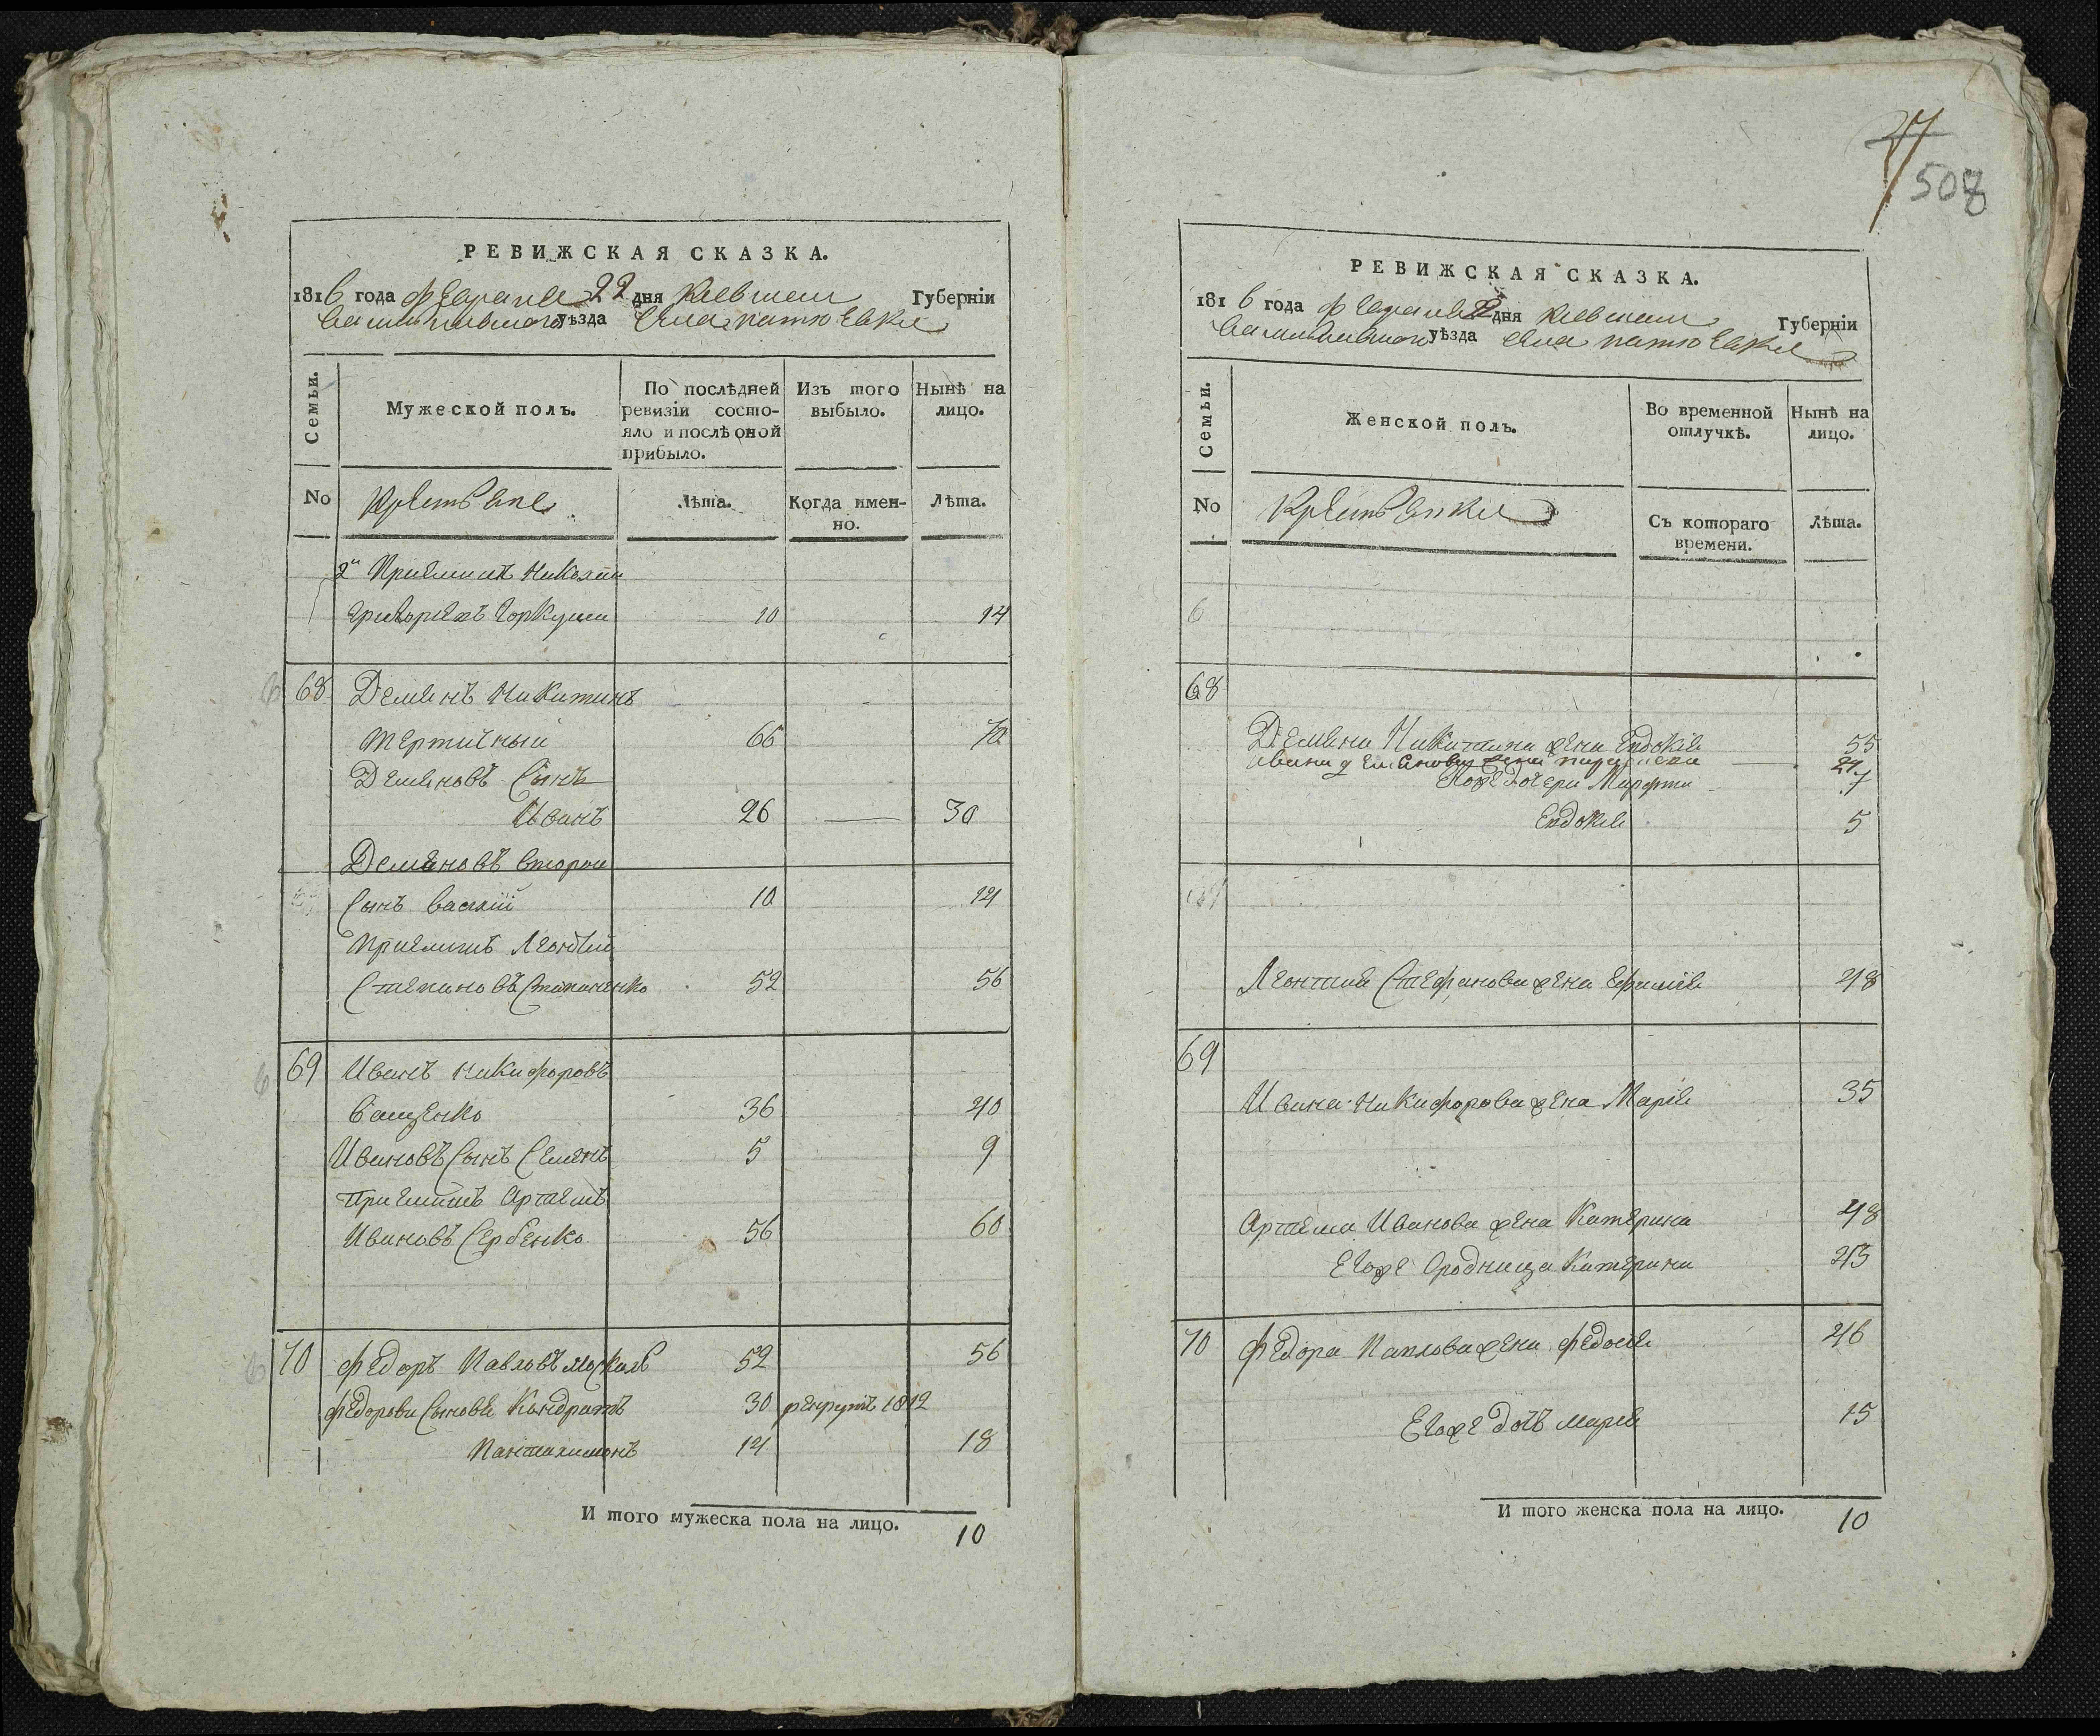 РЕВИЖСКАЯ СКАЗКА.
1816 года февраля 22 дня киевъской Губерніи
васильковъского уѣзда
Семьи.
Мужеской полъ.
По послѣдней ревизіи состояло и послѣ оной прибыло.
Изъ того выбыло.
Нынѣ на лицо.
No
Крестьяне
Лѣта.
Когда именно.
Лѣта.
2й Приемишъ Николай
Григориевъ Горкуши 10 14
68 Демянъ Никитинъ
Тертичный 66 70
Демяновъ Сынъ
Иванъ 26 — 30
Демяновъ второй
Сынъ василий 10 14
Приемишъ Леонтий
Степановъ Степаненко 52 56
69 Иванъ Никифоровъ
36 40
Ивановъ Сынъ Семенъ 5 9
Приемишъ Артемъ
Ивановъ Сербенко 56 60
70 Федоръ Павловъ Москаль 52 56
Федорови Сыновя Кондратъ 30 рекрутъ 1812
Пантилимонъ 14 18
И того мужеска пола на лицо. 10
27
508
РЕВИЖСКАЯ СКАЗКА.
1816 года февраля 22 дня киевъской Губерніи
васильковъского уѣзда
Семьи.
Женской полъ.
Во временной отлучкѣ.
Нынѣ на лицо.
No
Крестьянки
Съ котораго времени.
Лѣта.
6
68
Демяна Никитина жена Евдокия 55
Ивана Демянова жена параска 27
Егоже Дочери Марфа 7
Евдокия 5
Леонтия Стефанова жена Ефимия 48
69
Ивана Никифорова жена Мария 35
Артема Иванова жена Катерина 48
Егоже Сродница Катерина 43
70 Федора Павлова жена Федосия 46
Егоже дочь мария 15
И того женска пола на лицо. 10